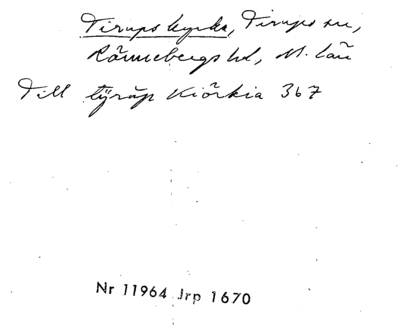 Tirups kyrka, Tirups sn,
Rönnebergs hd, M. län
Till tÿrúp Kiörkia 367
Nr 11964 Jrp 1670